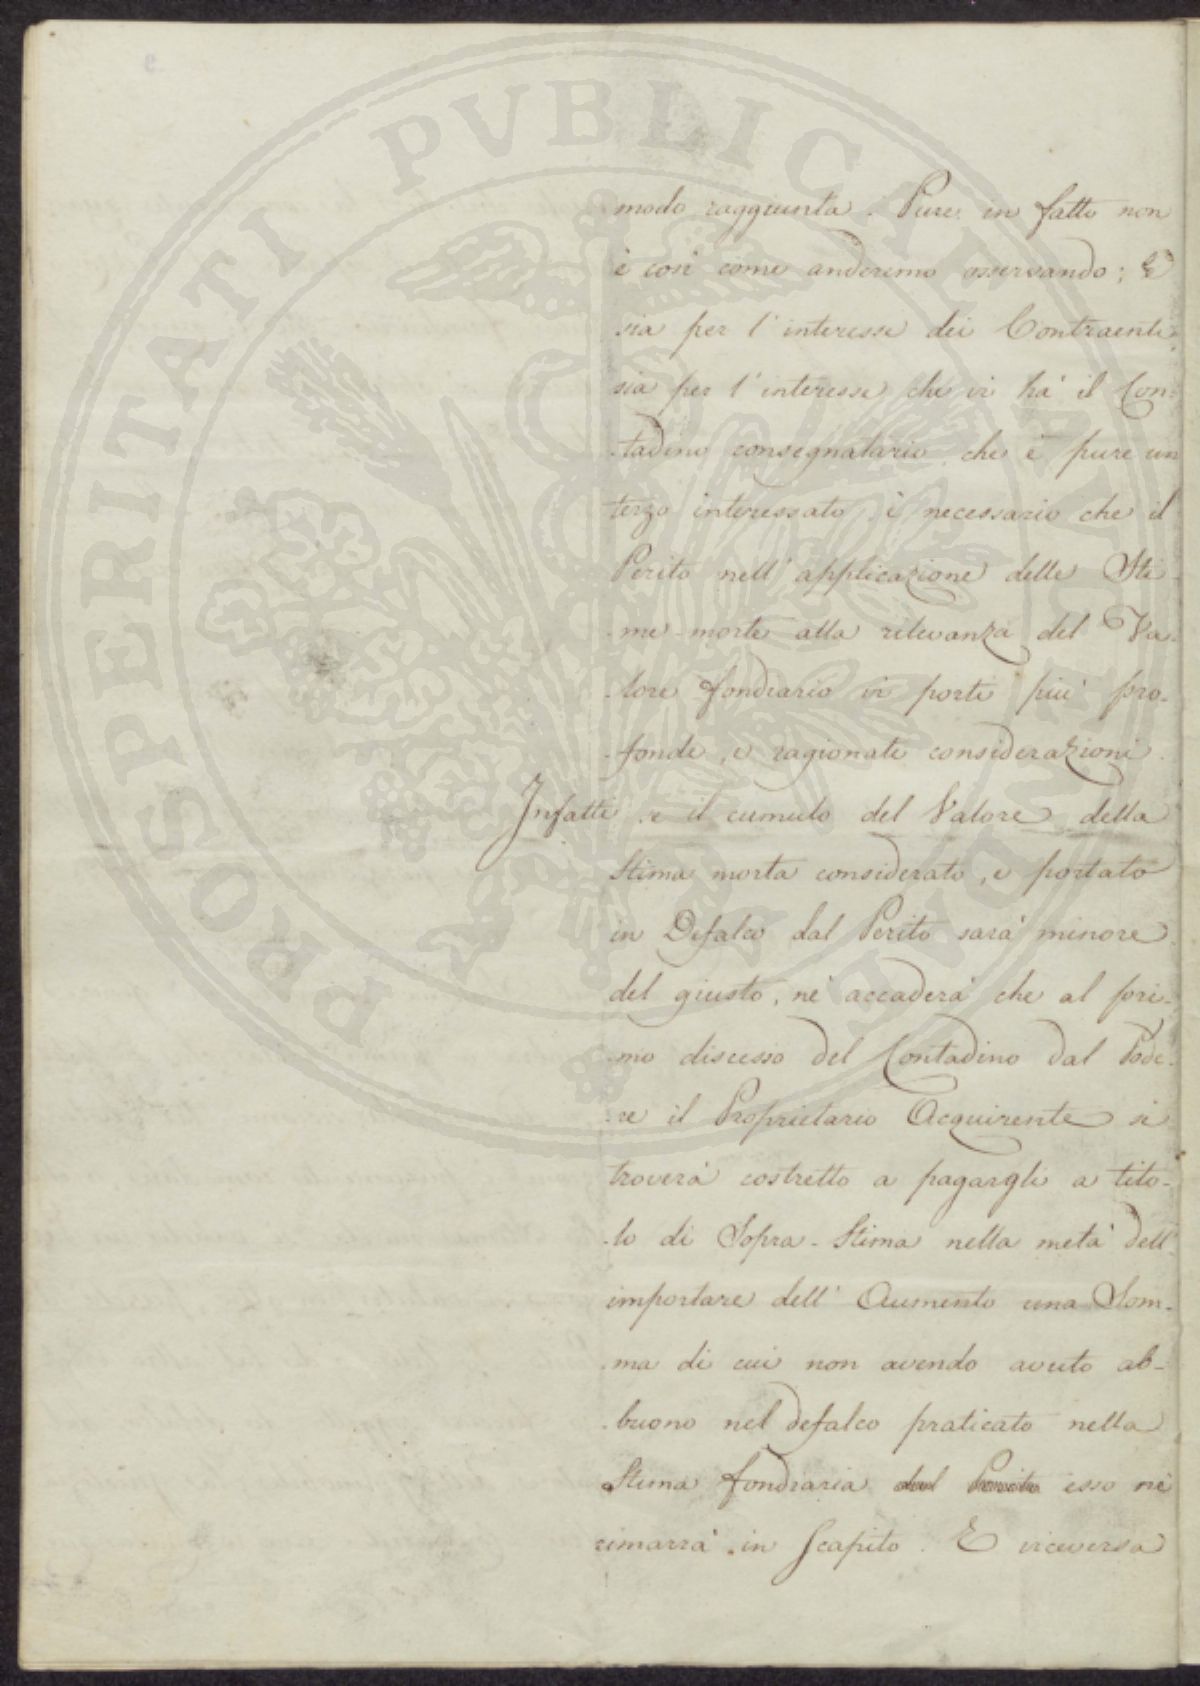 modo raggiunta. Pure in fatto non
è così come anderemo osservando; E
sia per l'interesse dei Contraenti,
sia per l'interesse che vi hà il Con-
-tadino consegnatario che è pure un
terzo interessato, è necessario che il
Perito nell'applicazione delle Sti-
-me-morte alla rilevanza del Va-
-lore fondiario vi porti più pro-
-fonde, e ragionate considerazioni.
Infatti se il cumulo del Valore della
Stima morta considerato, e portato
in Defalco dal Perito sarà minore
del giusto, nè accaderà che al pri-
-mo discesso del Contadino dal Pode-
-re il Proprietario Acquirente si
troverà costretto a pagargli a tito-
-lo di Sopra-Stima nella metà dell'
importare dell'Aumento una Som-
-ma di cui non avendo avuto ab-
-buono nel defalco praticato nella
Stima fondiaria dal Perito esso nè
rimarrà in Scapito. E viceversa
PROSPERITATI PVBLICAE AVGENDAE